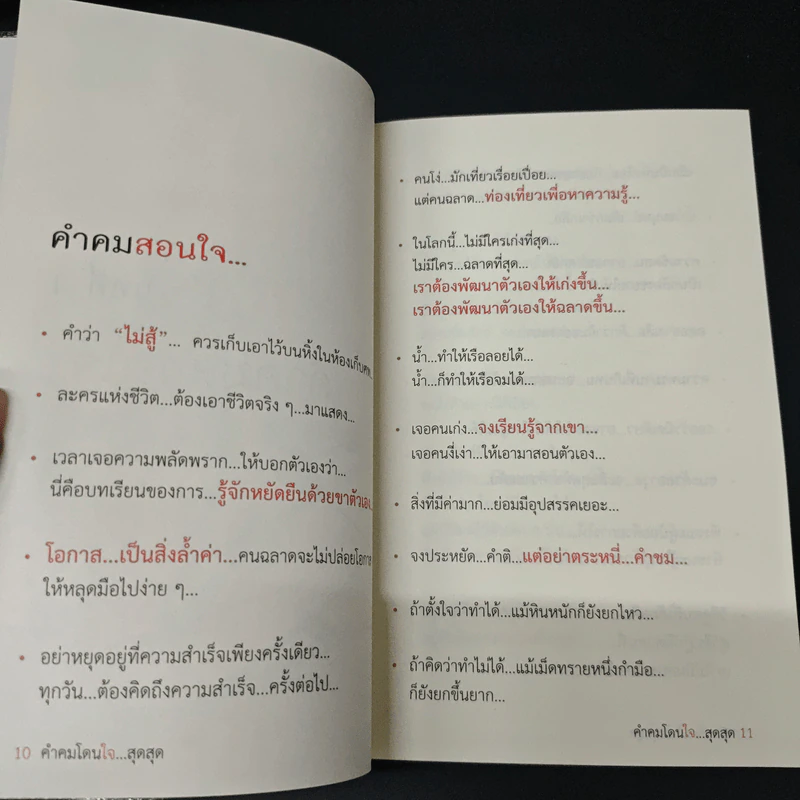 คำคมสอนใจ...
• คำว่า “ไม่สู้”... ควรเก็บเอาไว้บนหิ้งในห้องเก็บ
• ละครแห่งชีวิต...ต้องเอาชีวิตจริง ๆ...มาแสดง...
• เวลาเจอความพลัดพราก...ให้บอกตัวเองว่า...
นี่คือบทเรียนของการ...รู้จักหยัดยืนด้วยขาตัวเอง...
• โอกาส...เป็นสิ่งล้ำค่า...คนฉลาดจะไม่ปล่อยโอกาส
ให้หลุดมือไปง่าย ๆ...
• อย่าหยุดอยู่ที่ความสำเร็จเพียงครั้งเดียว...
ทุกวัน...ต้องคิดถึงความสำเร็จ...ครั้งต่อไป...
10 คำคมโดนใจ...สุดสุด
• คนโง่...มักเที่ยวเรื่อยเปื่อย...
แต่คนฉลาด...ท่องเที่ยวเพื่อหาความรู้...
• ในโลกนี้...ไม่มีใครเก่งที่สุด...
ไม่มีใคร...ฉลาดที่สุด...
เราต้องพัฒนาตัวเองให้เก่งขึ้น...
เราต้องพัฒนาตัวเองให้ฉลาดขึ้น...
• น้ำ...ทำให้เรือลอยได้...
น้ำ...ก็ทำให้เรือจมได้...
• เจอคนเก่ง...จงเรียนรู้จากเขา...
เจอคนงี่เง่า...ให้เอามาสอนตัวเอง...
• สิ่งที่มีค่ามาก...ย่อมมีอุปสรรคเยอะ...
• จงประหยัด...คำติ...แต่อย่าตระหนี่...คำชม...
• ถ้าตั้งใจว่าทำได้...แม้หินหนักก็ยังยกไหว...
• ถ้าคิดว่าทำไม่ได้...แม้เม็ดทรายหนึ่งกำมือ...
ก็ยังยกขึ้นยาก...
คำคมโดนใจ...สุดสุด 11